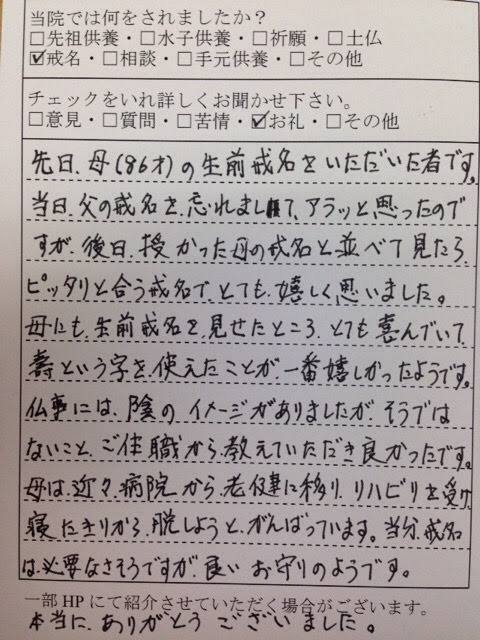 当院では何をされましたか？
□先祖供養・□水子供養・□祈願・□土仏
☑戒名・□相談・□手元供養・□その他
チェックをいれ詳しくお聞かせ下さい。
□意見・□質問・□苦情・☑お礼・□その他
先日、母(86才)の生前戒名をいただいた者です。
当日、父の戒名を、忘れまして、アラッと思ったので
すが、後日、授かった母の戒名と並べて見たら、
ピッタリと合う戒名で、とても、嬉しく思いました。
母にも、生前戒名を、見せたところ、とても喜んでいて、
壽という字を、使えたことが、一番嬉しかったようです。
仏事には、陰のイメージがありましたが、そうでは
ないこと、ご住職から、教えていただき良かったです。
母は、近々、病院から、老健に移り、リハビリを受け、
寝たきりから、脱しようと、がんばっています。当分、戒名
は、必要なさそうですが、良いお守りのようです。
一部 HP にて紹介させていただく場合がございます。
本当に、ありがとうございました。